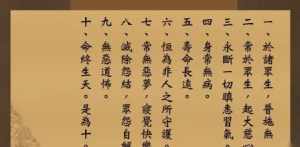 一、於諸眾生，普施無
二、常於眾生，起大慈
三、永斷一切瞋恚習氣。
四、身常無病。
五、壽命長遠。
六、恆為非人之所守護。
七、常無惡夢，寢覺快樂
八、滅除怨結，眾怨自解
九、無惡道怖。
十、命終生天。是為十。